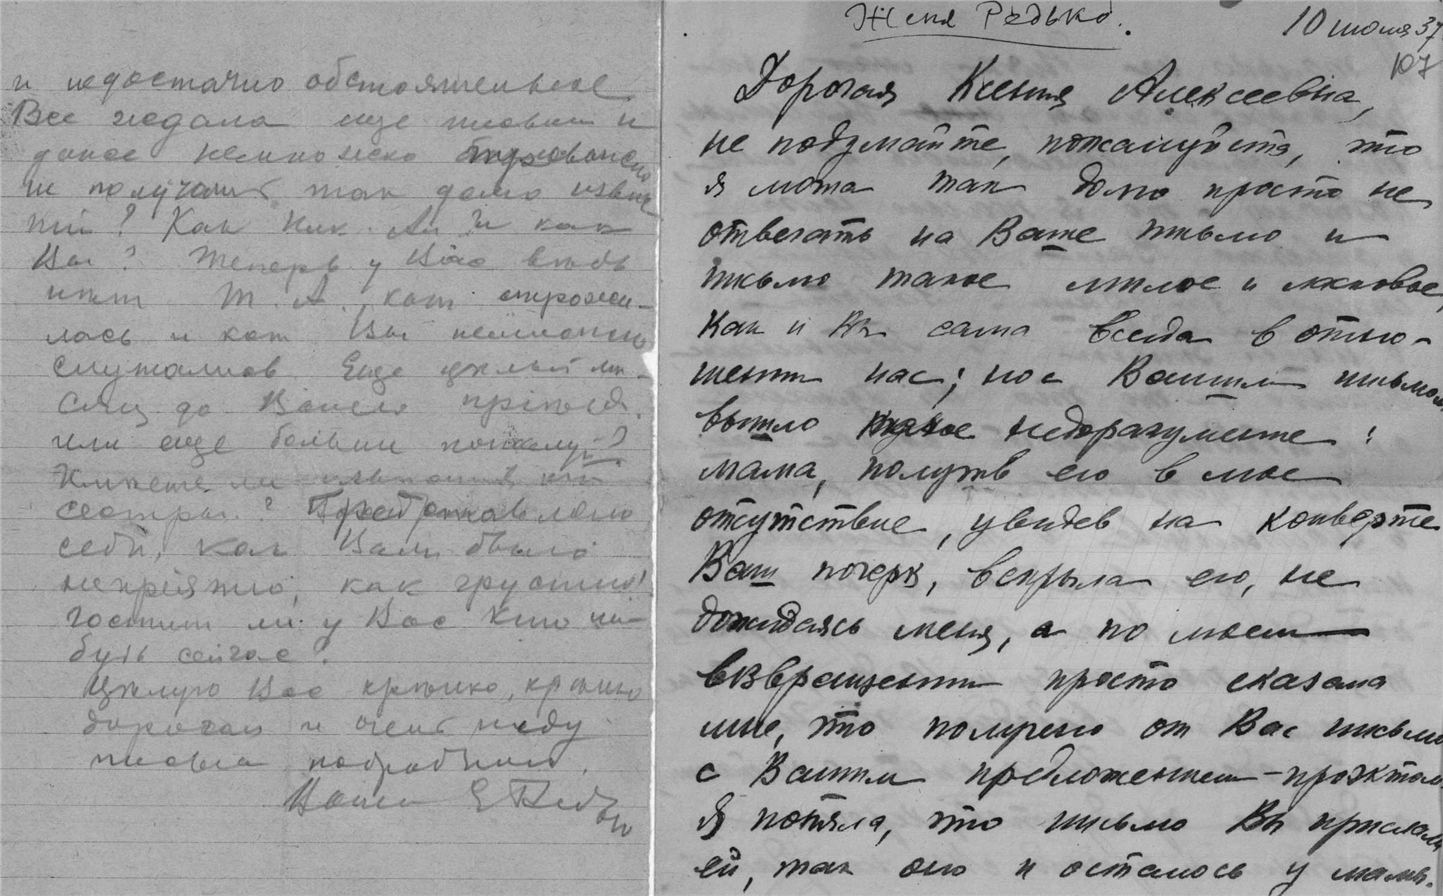 и недостачно обстоятельное
Все ждала еще письма и
даже немножко
не получаш так долго извес
тий? Как Ник. Ал. и как
Вы? Теперь у Вас ведь
нет Т. А.
лась и как Вы немножко
Еще целый ме-
сяц до Вашего приезда
или еще больше пожалуй?
сестры? Представляю
себе, как Вам было
неприятно, как грустно!
гостит ли у Вас кто ни-
будь сейчас?
Целую Вас крепко, крепко
дорогая и очень жду
письма подробного.
Ваша Е Редь
ко
Женя Редько.
10 июля 37
107
Дорогая Ксения Алексеевна,
не подумайте, пожалуйста, что
я могла так долго просто не
отвечать на Ваше письмо и
письмо такое милое и ласковое,
как и Вы сама всегда в отно-
шении нас; но с Вашим письмом
вышло недоразумение:
мама, получив его в мое
отсутствие, увидев на конверте
Ваш почерк, вскрыла его, не
дожидаясь меня, а по моем
возвращении просто сказала
мне, что получено от Вас письмо
с Вашим предложением-проэктом
Я поняла, что письмо Вы прислали
ей, так оно и осталось у мамы.